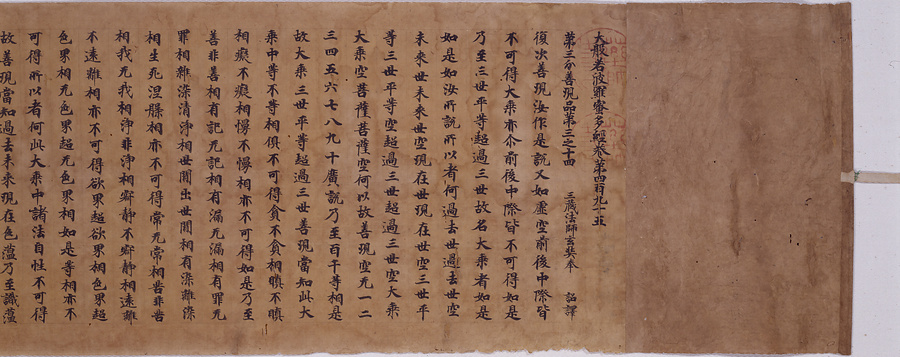 大般若波羅蜜多經卷第四百九十五
第三分善現品第三之十四　三藏法師玄奘奉　詔譯
復次善現汝作是說又如虛空前後中際皆
不可得大乘亦尒前後中際皆不可得如是
乃至三世平等超過三世故名大乘者如是
如是如汝所說所以者何過去世過去世空
未來世未來世空現在世現在世空三世平
等三世平等空超過三世超過三世空大乘
大乘空菩薩菩薩空何以故善現空无一二
三四五六七八九十廣說乃至百千等相是
故大乘三世平等超過三世善現當知此大
乘中等不等相俱不可得貪不貪相瞋不瞋
相癡不癡相慢不慢相亦不可得如是乃至
善非善相有記无記相有漏无漏相有罪无
罪相雜染清淨相世間出世間相有染離染
相生死涅槃相亦不可得常无常相苦非苦
相我无我相淨非淨相寂靜不寂靜相遠離
不遠離相亦不可得欲界超欲界相色界超
色界相无色界超无色界相如是等相亦不
可得所以者何此大乘中諸法自性不可得
故善現當知過去未來現在色蘊乃至識蘊